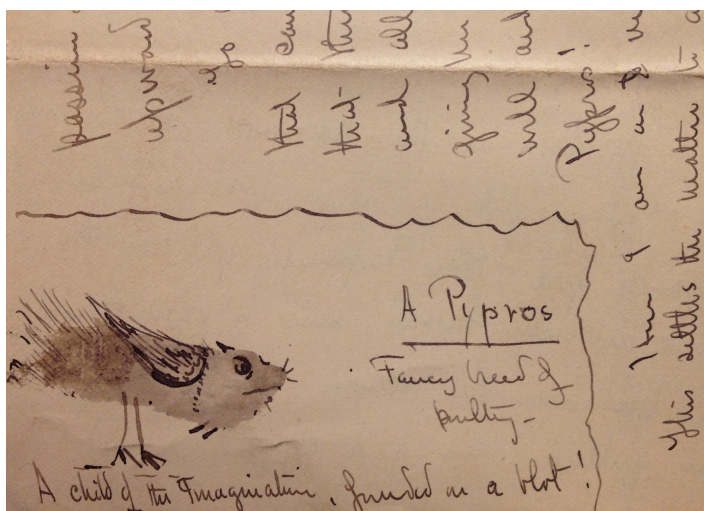 A Pypros
Fancy breed of
poultry -
A child of the Imagination, founded on a blot!
passion
upward
ago can
that the
that
and all
giving in
will and
Pypros!
I am an
This settles the matter to a